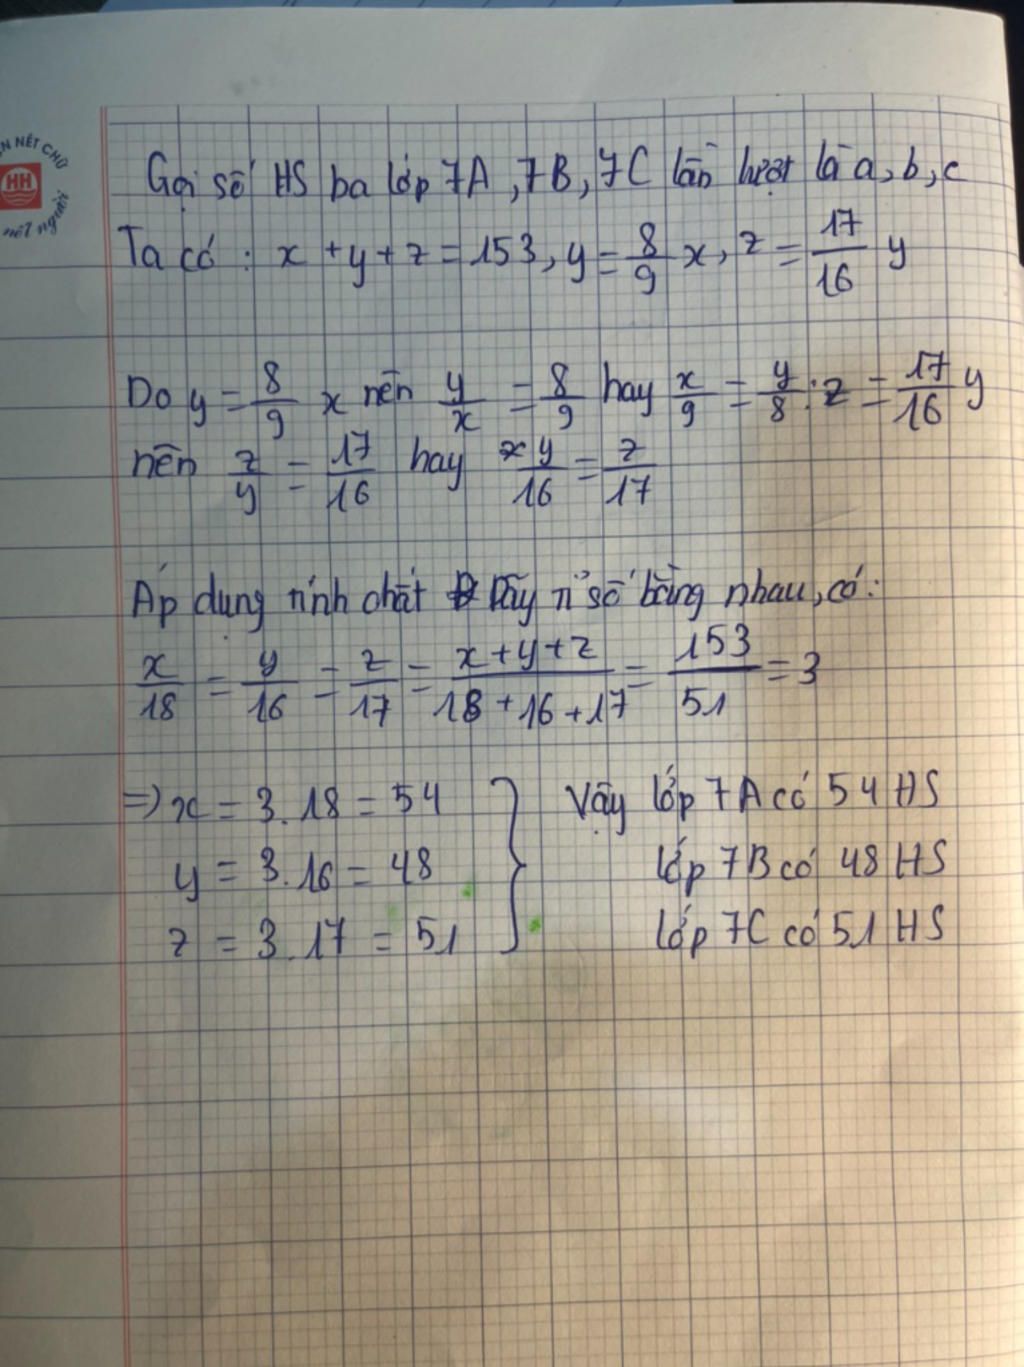 ÈN NÉT CHỮ
HH
nết người
Gọi số HS ba lớp 7A, 7B, 7C lần lượt là a, b, c
Ta có: x + y + z = 153, y = 8/9 x, z = 17/16 y
Do y = 8/9 x nên y/x = 8/9 hay x/9 = y/8; z = 17/16 y
nên z/y = 17/16 hay y/16 = z/17
Áp dụng tính chất Dãy tỉ số bằng nhau, có:
x/18 = y/16 = z/17 = x+y+z/18+16+17 = 153/51 = 3
=> x = 3.18 = 54 } Vậy lớp 7A có 54 HS
y = 3.16 = 48 lớp 7B có 48 HS
z = 3.17 = 51 lớp 7C có 51 HS